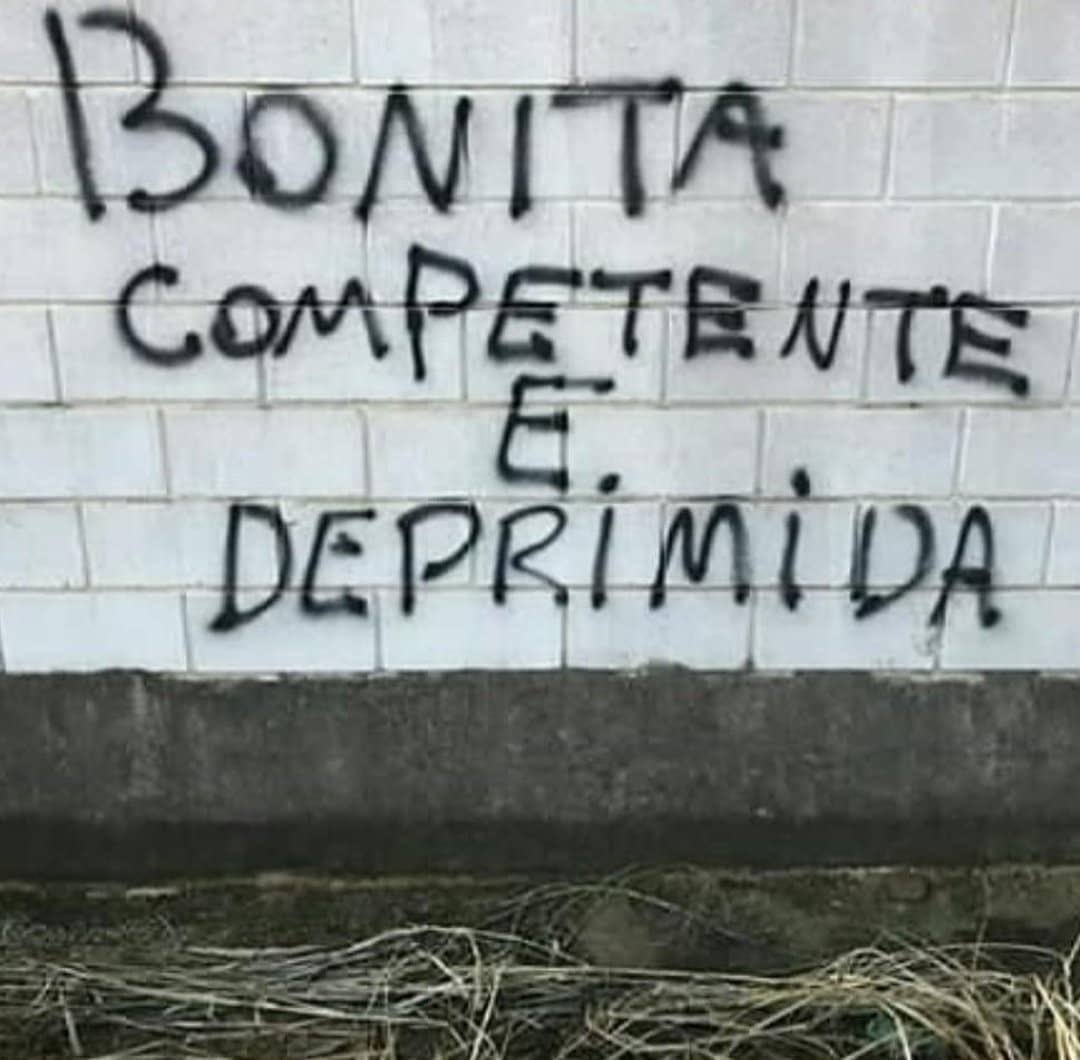 BONITA
COMPETENTE
E
DEPRIMIDA